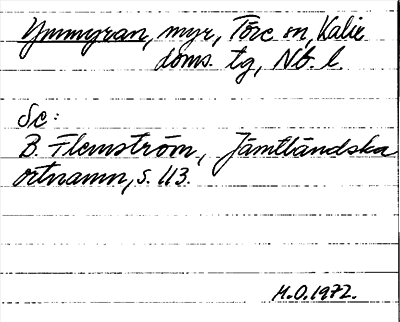 Ymmyran, myr, Töre sn, Kalix
doms. tg, Nb. l.
Se:
B. Flemström, Jämtländska
ortnamn, s. 113.
M.O. 1972.